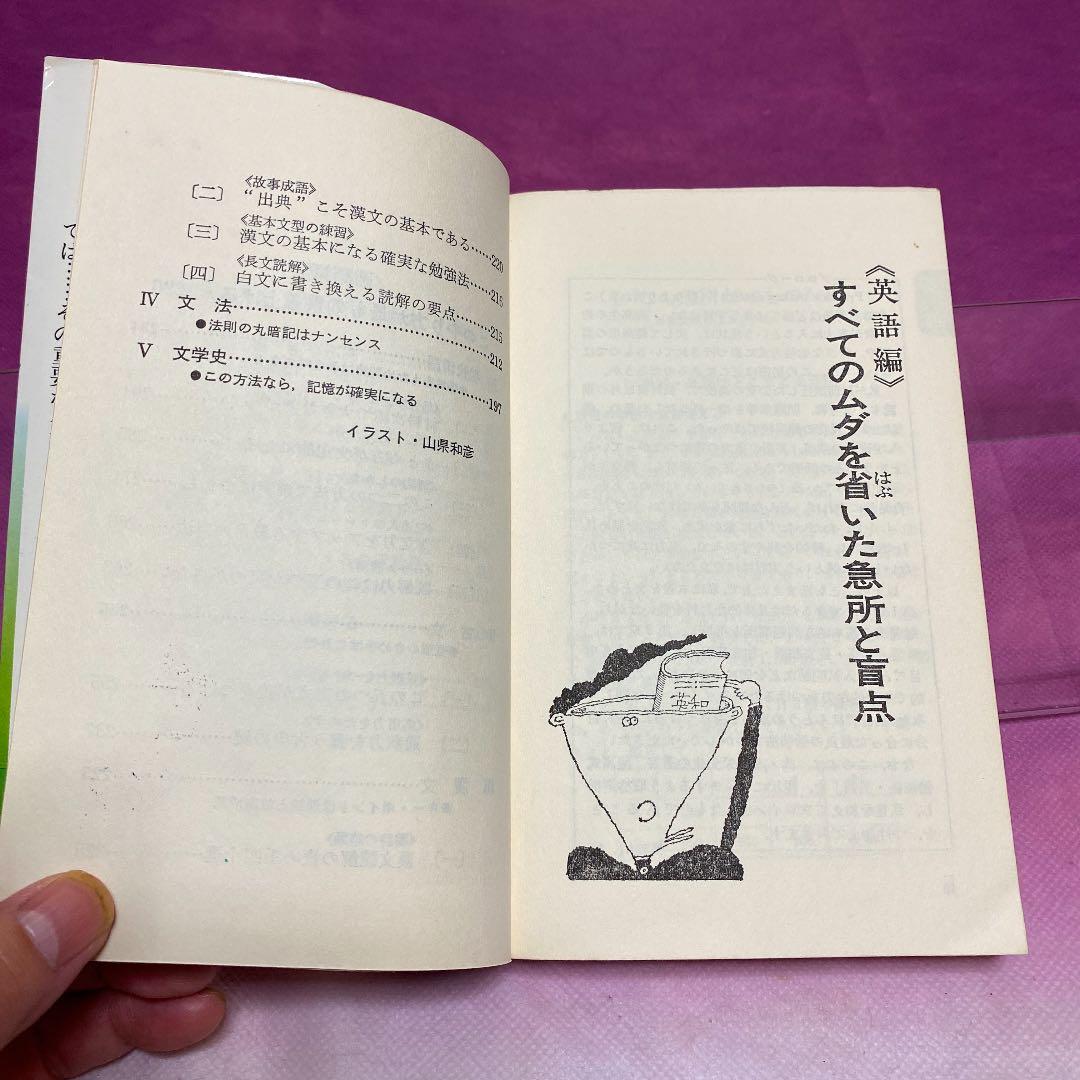 《故事成語》
〔二〕“出典”こそ漢文の基本である……220
《基本文型の練習》
〔三〕漢文の基本になる確実な勉強法……216
《長文読解》
〔四〕白文に書き換える読解の要点……215
Ⅳ 文法……212
●法則の丸暗記はナンセンス
Ⅴ 文学史……197
●この方法なら，記憶が確実になる
イラスト・山県和彦
《英語編》
すべてのムダを省いた急所と盲点
はぶ
英和